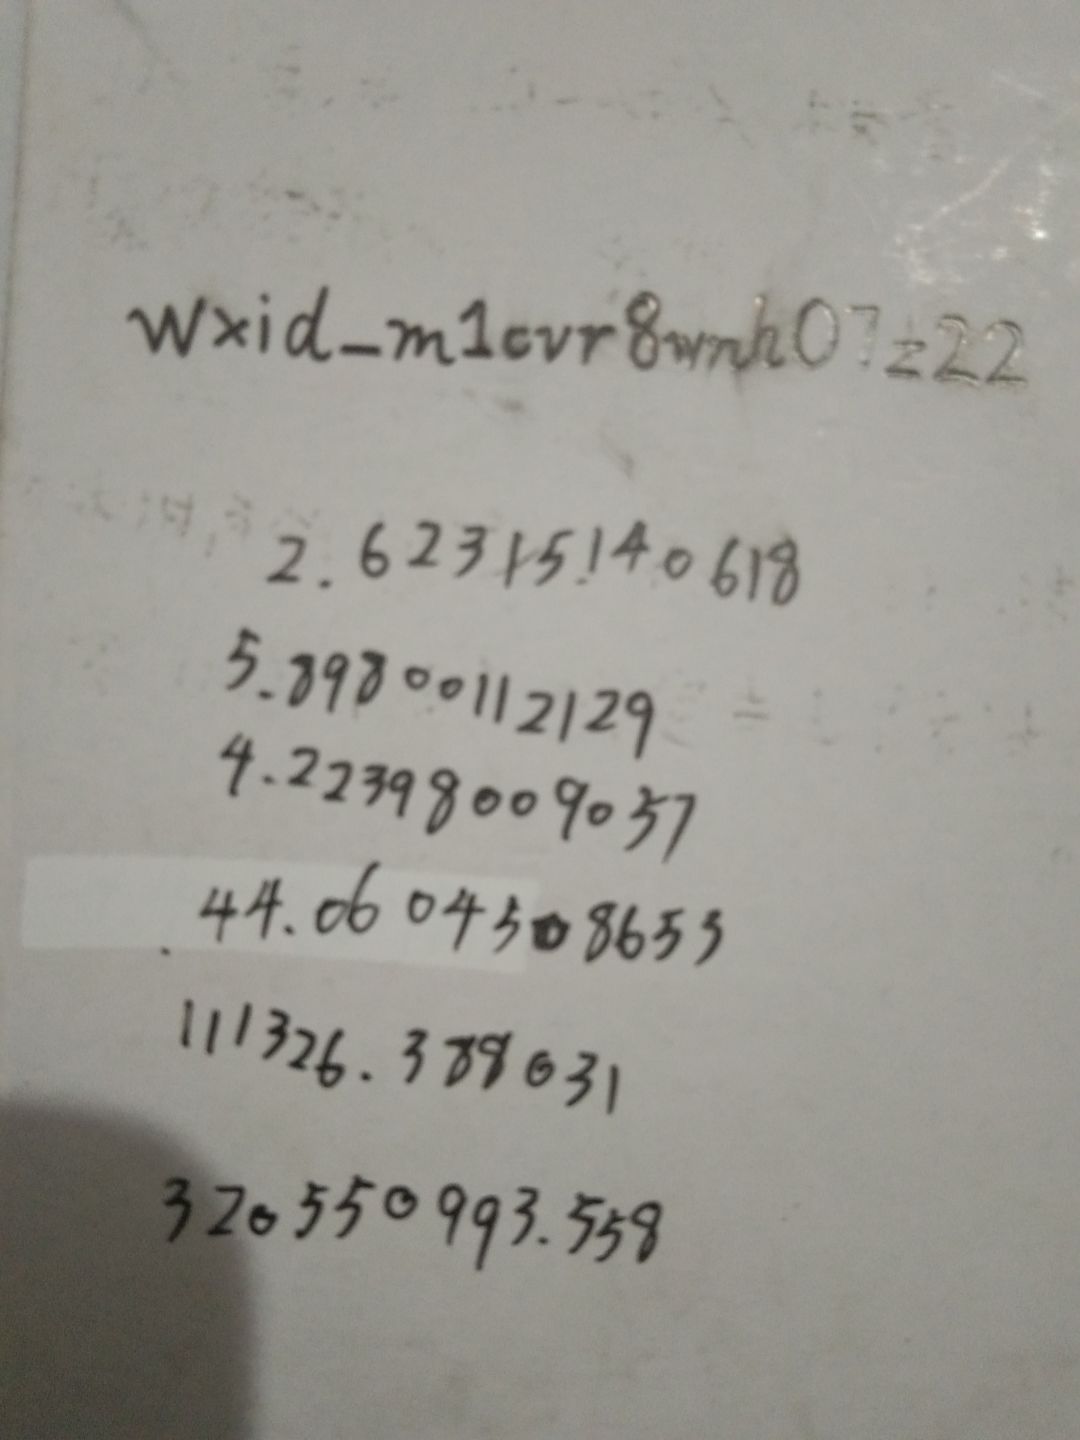 wxid_m1cvr8wnh07z22
2.623151140618
5.89800112129
4.22398009037
44.0604508653
111326.388031
320550993.558